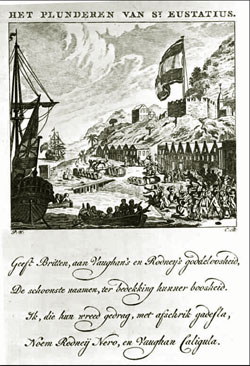 HET PLUNDEREN VAN St. EUSTATIUS.
Geeft Britten, aan Vaughan's en Rodney's goddeloosheid,
De schoonste naamen, ter bedekking hunner boosheid.
Ik, die hun wreed gedrag, met afschrik gadesla,
Noem Rodneij Nero, en Vaughan Caligula.